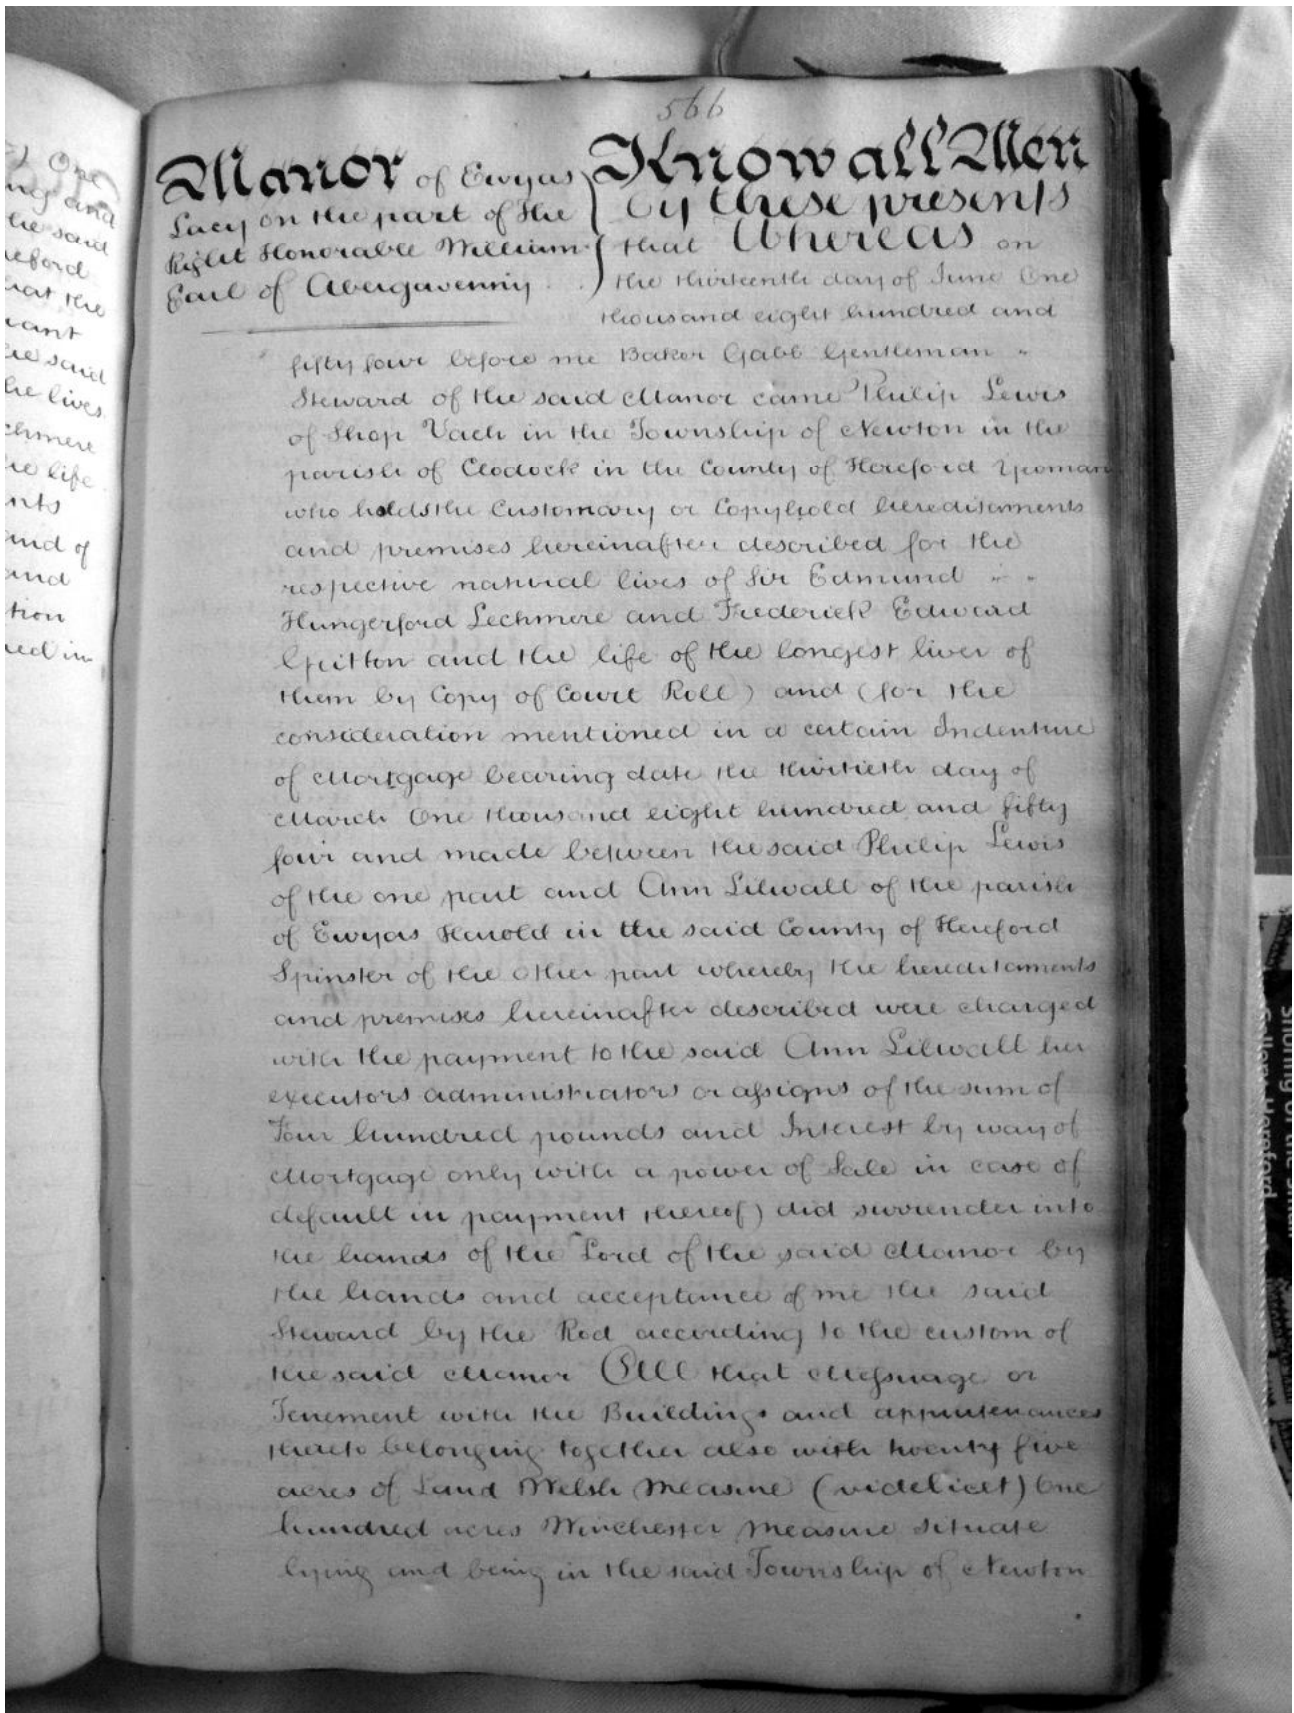 566
Manor of Ewyas
Lacy on the part of the
Right Honorable William
Earl of Abergavenny
Know all Men
by these presents
that Whereas on
the thirteenth day of June One
thousand eight hundred and
fifty four before me Baker Gabb Gentleman
Steward of the said Manor came Philip Lewis
of Shop Vach in the Township of Newton in the
parish of Clodock in the County of Hereford Yeoman
who holds the Customary or Copyhold hereditaments
and premises hereinafter described for the
respective natural lives of Sir Edmund
Hungerford Lechmere and Frederick Edward
Guitton and the life of the longest liver of
them by Copy of Court Roll) and (for the
consideration mentioned in a certain Indenture
of Mortgage bearing date the thirtieth day of
March One thousand eight hundred and fifty
four and made between the said Philip Lewis
of the one part and Ann Lilwall of the parish
of Ewyas Harold in the said County of Hereford
Spinster of the other part whereby the hereditaments
and premises hereinafter described were charged
with the payment to the said Ann Lilwall her
executors administrators or assigns of the sum of
Four hundred pounds and Interest by way of
Mortgage only with a power of Sale in case of
default in payment thereof) did surrender into
the hands of the Lord of the said Manor by
the hands and acceptance of me the said
Steward by the Rod according to the custom of
the said Manor All that Messuage or
Tenement with the Buildings and appurtenances
thereto belonging together also with twenty five
acres of Land Welsh Measure (videlicet) One
hundred acres Winchester Measure situate
lying and being in the said Township of Newton